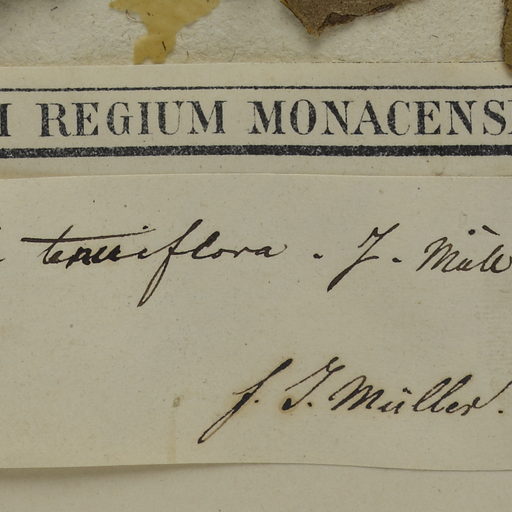 M REGIUM MONACENS
tenuiflora. J. Müll
f. J. Müller.